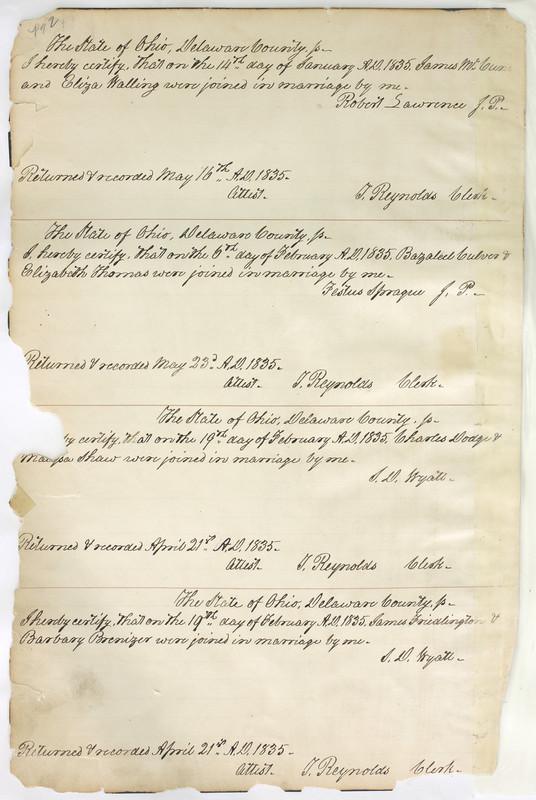 pg 2
The State of Ohio, Delaware County, ss-
I hereby certify, that on the 14th day of January A.D. 1835, James
and Eliza Walling were joined in marriage by me-
Robert Lawrence J. P.-
Returned & recorded May 16th A.D. 1835-
Attest. T. Reynolds Clerk-
The State of Ohio, Delaware County, ss-
I, hereby certify, that on the 6th day of February A.D. 1835, Bazaleel Culver &
Elizabeth Thomas were joined in marriage by me-
Festus Sprague J. P.-
Returned & recorded May 23d A.D. 1835-
Attest. T. Reynolds Clerk-
The State of Ohio, Delaware County. ss-
certify, that on the 19th day of February A.D. 1835, Charles Dodge &
Shaw were joined in marriage by me-
S. D. Wyatt-
Returned & recorded April 21st A.D. 1835-
Attest. T. Reynolds Clerk-
The State of Ohio, Delaware County, ss-
I hereby certify, that on the 19th day of February A.D. 1835, James Fridlington &
Barbary Brenizer were joined in marriage by me-
S. D. Wyatt-
Returned & recorded April 21st A.D. 1835-
Attest. T. Reynolds Clerk-